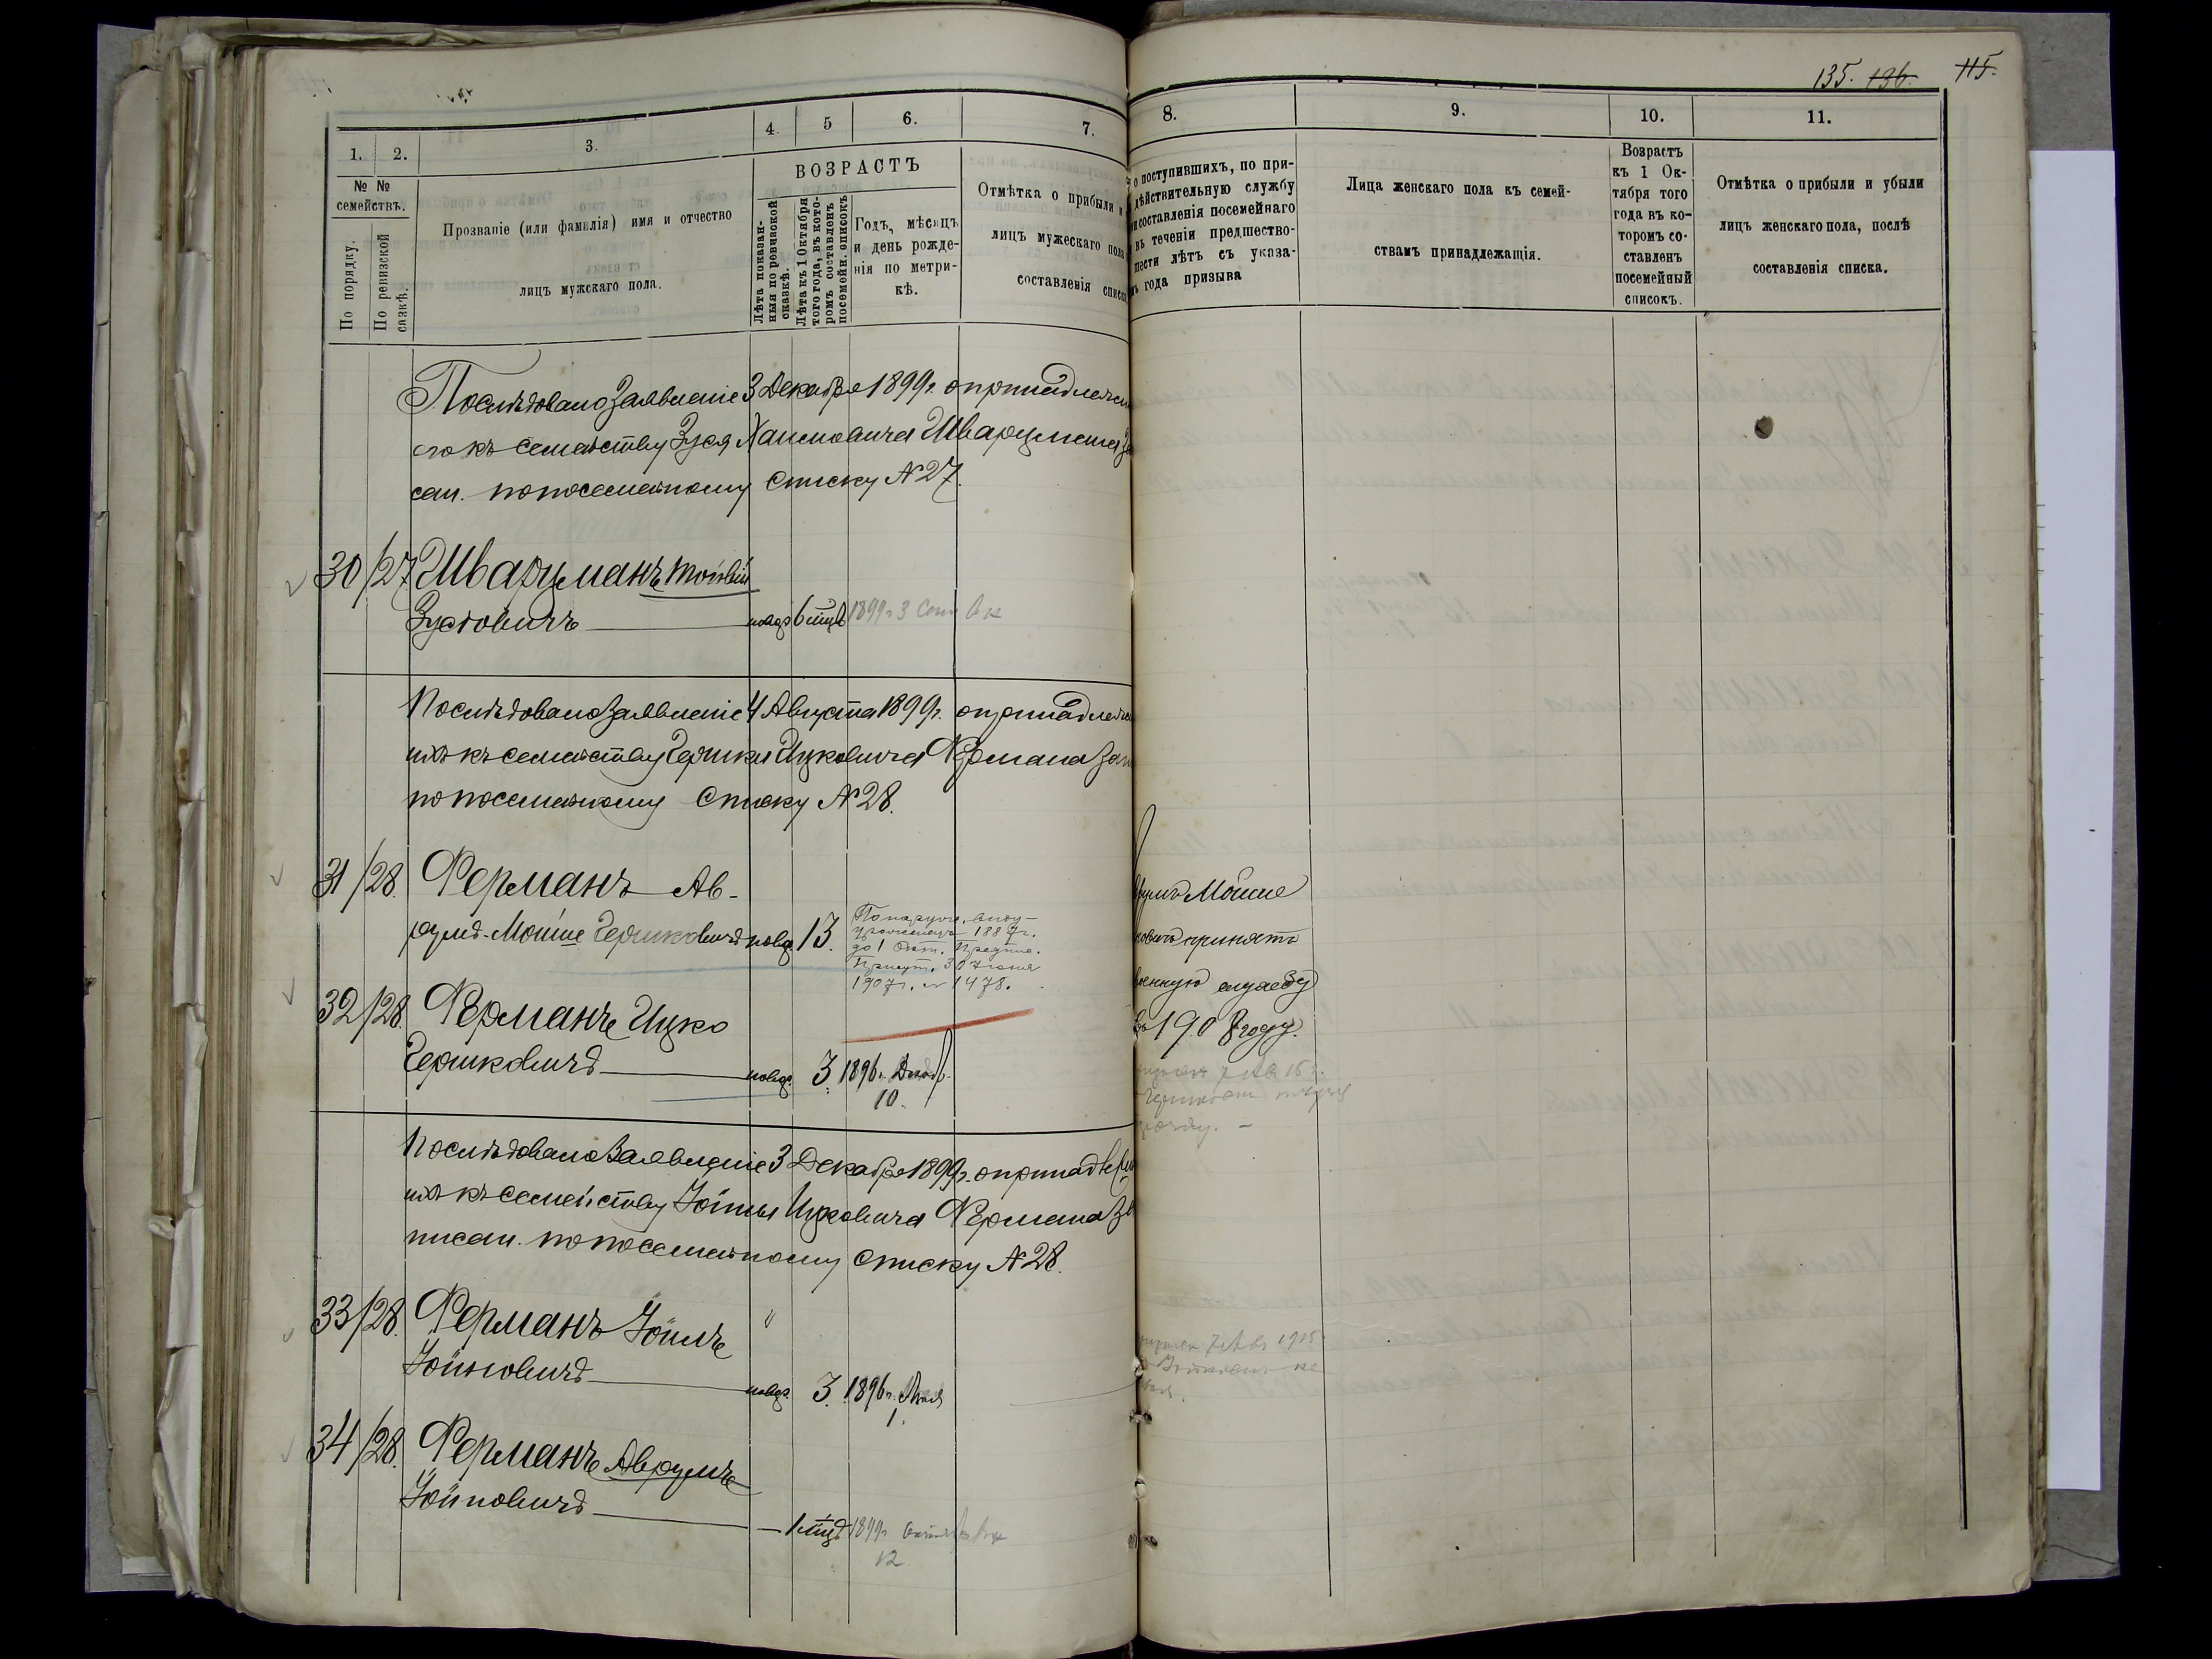 135. 136. 115.
1. 2. 3. 4. 5 6. 7.
8. 9. 10. 11.
№ №
семействъ.
По порядку.
По ревизской
сазкѣ.
Прозваніе (или фамилія) имя и отчество
лицъ мужскаго пола.
ВОЗРАСТЪ
Лѣта показан-
ныя по ревизской
сказкѣ.
Лѣта къ 1 Октября
того года, въ кото-
ромъ составленъ
посемейн. списокъ
Годъ, мѣсяцъ
и день рожде-
нія по метри-
кѣ.
Отмѣтка о прибыли и
лицъ мужескаго пола
составленія списк
о поступившихъ, по при-
дѣйствительную службу
составленія посемейнаго
въ теченіи предшество-
шести лѣтъ съ указа-
года призыва
Лица женскаго пола къ семей-
ствамъ принадлежащія.
Возрастъ
къ 1 Ок-
тября того
года въ ко-
торомъ со-
ставленъ
посемейный
списокъ.
Отмѣтка о прибыли и убыли
лицъ женскаго пола, послѣ
составленія списка.
Послѣдовало Заявленіе 3 Декабря 1899 г. о принадлежн
къ семейству Зуся Хаимовича Шварцмана
сан. по посемейному списку № 27.
30/27 Шварцманъ
Зусьовичъ 6 мцв 1899 г. 3
Послѣдовало Заявленіе 4 Августа 1899 г. о принадлежн
къ семейству Гершка Ицковича Фермана Зап
по посемейному списку № 28.
31/28. Ферманъ Ав-
румъ-Мойше Гершковичъ новор. 13.
1887 г.
до 1 Окт.
Присут. 30 Іюня
1907 г. № 1478.
румъ Мойше
ковичъ принятъ
военную службу
въ 1908 году.
32/28. Ферманъ Ицко
Гершковичъ новор. 3 1896 г. Декаб.
10.
Послѣдовало Заявленіе 3 Декабря 1899 г. о принадлеж
къ семейству Іойны Ицковича Фермана За
писан. по посемейному списку № 28.
33/28. Ферманъ Іоилъ "
Іойновичъ новор. 3. 1896 г. Мая
1.
1915
34/28. Ферманъ Аврумъ
Іойновичъ — 1 мцъ 1899 г.
12